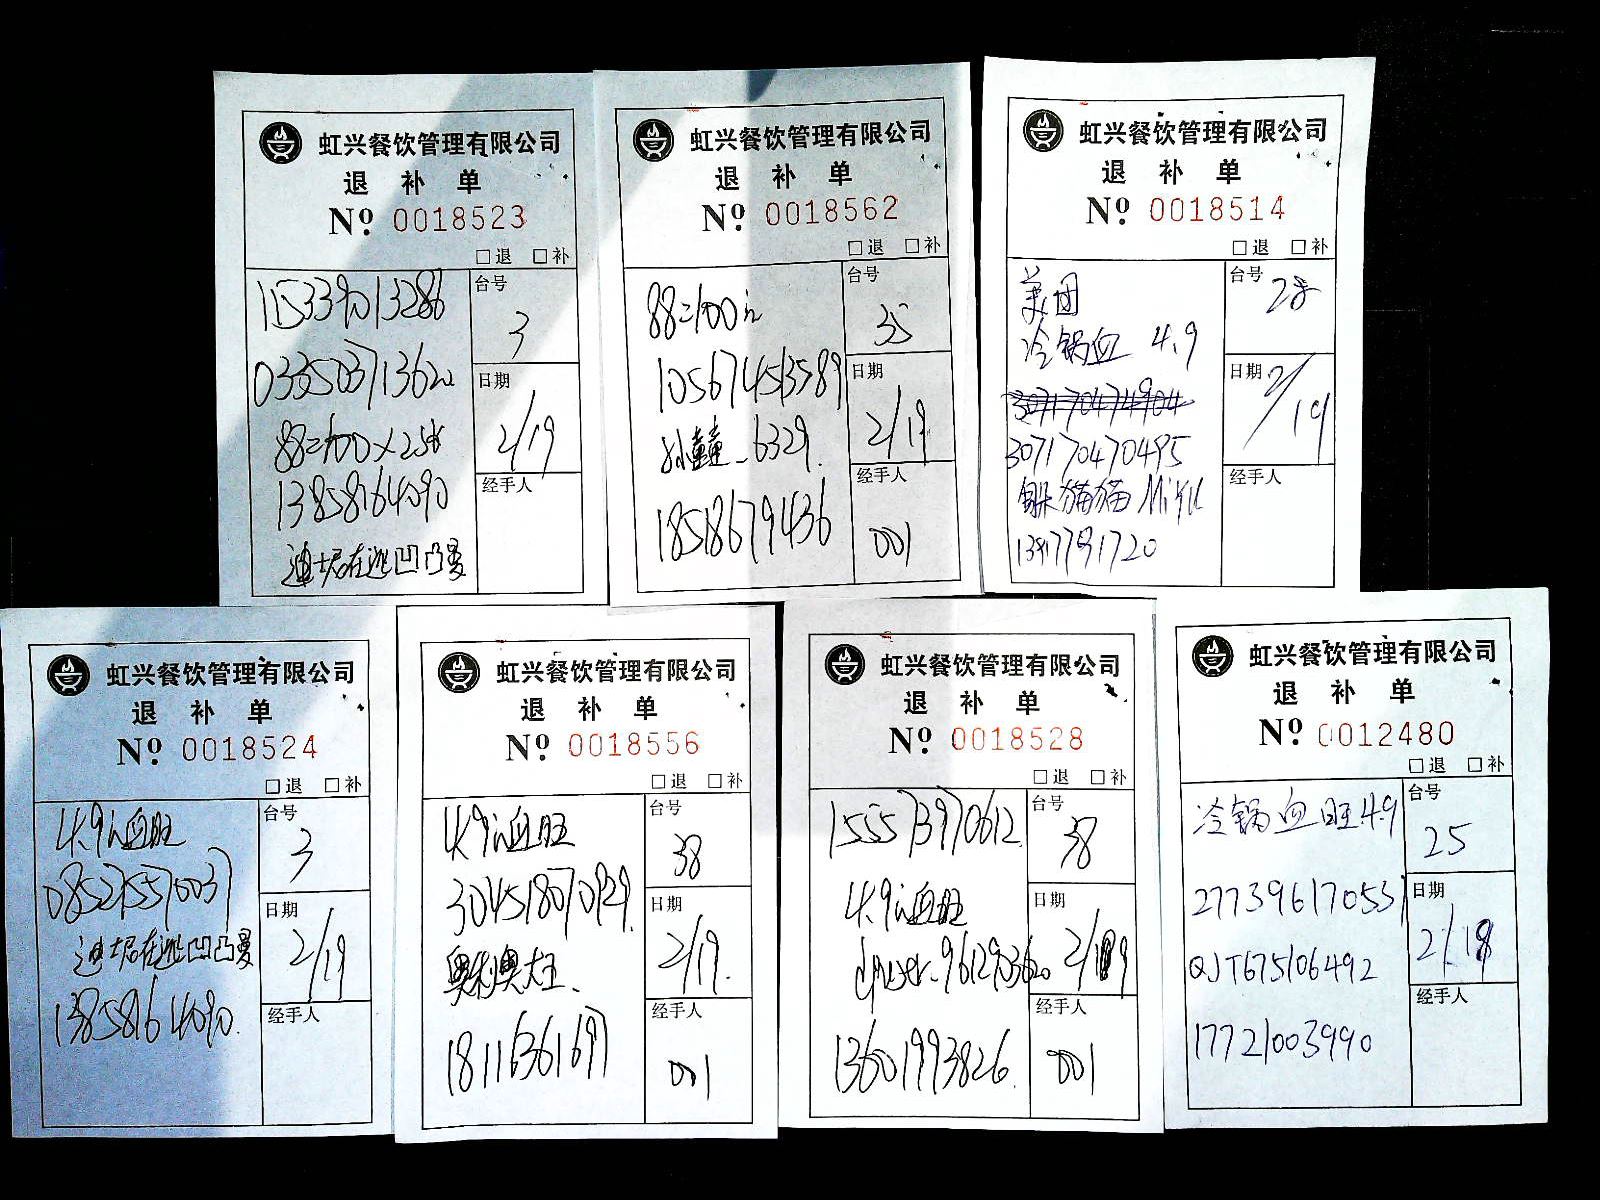 虹兴餐饮管理有限公司
退 补 单
Nº 0018523
□退 □补
台号
3
日期
2/19
经手人
15339013286
88=100×2张
13858164090
迪士尼在逃凹凸曼
虹兴餐饮管理有限公司
退 补 单
Nº 0018562
□退 □补
88=100元
台号
35
105674513589
日期
2/19
孙童童-6329.
18518679436
经手人
001
虹兴餐饮管理有限公司
退 补 单
Nº 0018514
□退 □补
美团
台号
28
冷锅血 4.9
日期
2/19
307170470495
猫猫 Miku
经手人
虹兴餐饮管理有限公司
退 补 单
Nº 0018524
□退 □补
4.9元血旺
台号
3
日期
2/19
迪士尼在逃凹凸曼
13858164090.
经手人
虹兴餐饮管理有限公司
退 补 单
Nº 0018556
□退 □补
4.9元血旺
台号
38
304518070929
日期
2/19.
大王.
18116361697
经手人
001
虹兴餐饮管理有限公司
退 补 单
Nº 0018528
□退 □补
155573970612
台号
38
4.9元血旺
日期
13601993826.
经手人
001
虹兴餐饮管理有限公司
退 补 单
Nº 0012480
□退 □补
冷锅血旺4.9
台号
25
277396170531
日期
2/18
QJT675106492
17721003990
经手人